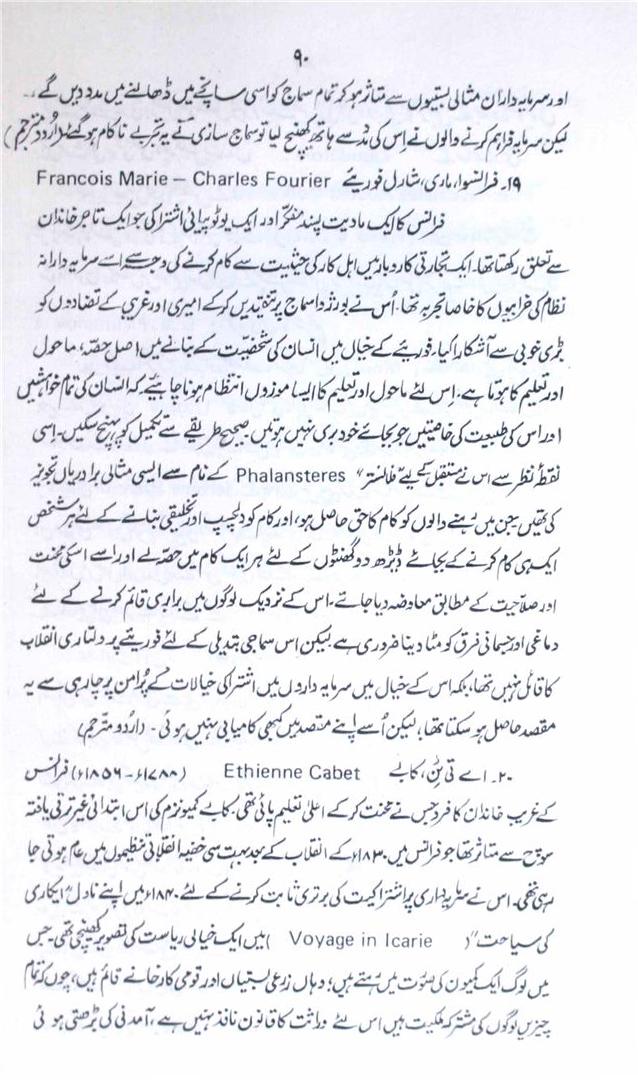 ۹۰
اور سرمایہ داران مثالی بستیوں سے متاثر ہوکر تمام سماج کو اسی سانچے میں ڈھالنے میں مدد دیں گے۔
لیکن سرمایہ فراہم کرنے والوں نے اِس کی مدد سے ہاتھ کھینچ لیا تو سماج سازی کے یہ تجربے ناکام ہوگئے (اُردو مترجم)
۱۹۔ فرانسوا، ماری، شارل فوریئے Francois Marie – Charles Fourier
فرانس کا ایک مادیت پسند مفکّر اور ایک یوٹوپیائی اشتراکی جو ایک تاجر خاندان
سے تعلق رکھتا تھا۔ ایک تجارتی کاروبار میں اہل کار کی حیثیت سے کام کرنے کی وجہ سے اسے سرمایہ دارانہ
نظام کی خرابیوں کا خاصا تجربہ تھا۔ اُس نے بورژوا سماج پر تنقیدیں کرکے امیری اور غریبی کے تضادوں کو
بڑی خوبی سے آشکارا کیا۔ فوریئے کے خیال میں انسان کی شخصیّت کے بنانے میں اصل حصّہ، ماحول
اور تعلیم کا ہوتا ہے، اِس لئے ماحول اور تعلیم کا ایسا موزوں انتظام ہونا چاہیئے کہ انسان کی تمام خواہشیں
اور اس کی طبیعت کی خاصیتیں جو بجائے خود بری نہیں ہوتیں۔ صحیح طریقے سے تکمیل کو پہنچ سکیں۔ اِسی
نقطۂ نظر سے اس نے مستقبل کیلئے فلانستر" Phalansteres کے نام سے ایسی مثالی برادریاں تجویز
کی تھیں۔ جن میں رہنے والوں کو کام کا حق حاصل ہو، اور کام کو دلچسپ اور تخلیقی بنانے کے لئے ہر شخص
ایک ہی کام کرنے کے بجائے ڈیڑھ دو گھنٹوں کے لئے ہر ایک کام میں حصّہ لے اور اسے اسکی محنت
اور صلاحیت کے مطابق معاوضہ دیا جائے۔ اس کے نزدیک لوگوں میں برابری قائم کرنے کے لئے
دماغی اور جسمانی فرق کو مٹا دینا ضروری ہے لیکن اِس سماجی تبدیلی کے لئے فوریئے پرولتاری انقلاب
کا قائل نہیں تھا، بلکہ اس کے خیال میں سرمایہ داروں میں اشتراکی خیالات کے پُرامن پرچار ہی سے یہ
مقصد حاصل ہو سکتا تھا، لیکن اُسے اپنے مقصد میں کبھی کامیابی نہیں ہوئی۔ (اُردو مترجم)
۲۰۔ اے تی یِن، کابے Ethienne Cabet (۱۷۸۸ء–۱۸۵۶ء) فرانس
کے غریب خاندان کا فرد جس نے محنت کرکے اعلیٰ تعلیم پائی تھی۔ کابے کمیونزم کی اس ابتدائی غیر ترقی یافتہ
سوچ سے متاثر تھا جو فرانس میں ۱۸۳۰ء کے انقلاب کے بعد بہت سی خفیہ انقلابی تنظیموں میں عام ہوتی جا
رہی تھی۔ اس نے سرمایہ داری پر اشتراکیت کی برتری ثابت کرنے کے لئے ۱۸۴۰ء میں اپنے ناول "ایکاری
کی سیاحت" ( Voyage in Icarie ) میں ایک خیالی ریاست کی تصویر کھینچی تھی۔ جس
میں لوگ ایک کمیون کی صورت میں رہتے ہیں؛ وہاں زرعی بستیاں اور قومی کارخانے قائم ہیں، چوں کہ تمام
چیزیں لوگوں کی مشترکہ ملکیت ہیں اس لئے وراثت کا قانون نافذ نہیں ہے، آمدنی کی بڑھتی ہوئی